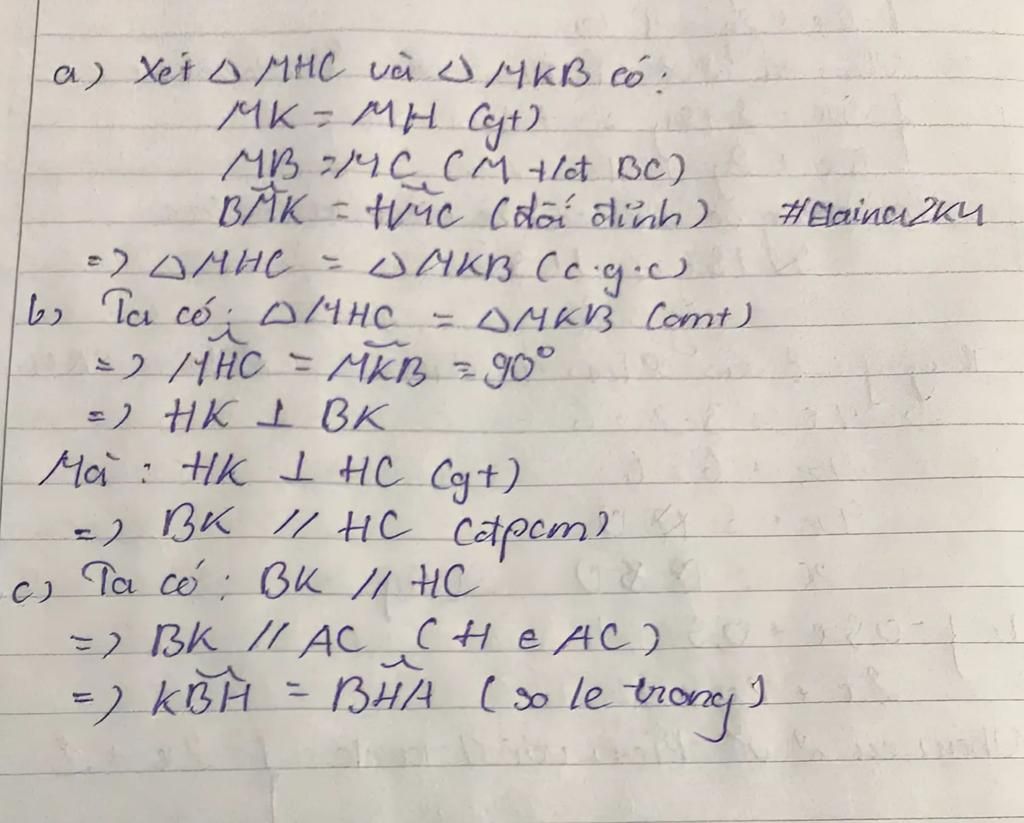 a) Xét △ MHC và △ MKB có:
MK = MH (gt)
MB = MC (M t/đt BC)
BMK = HMC (đối đỉnh) #Elaina2K4
=> △ MHC = △ MKB (c.g.c)
b) Ta có: △ MHC = △ MKB (cmt)
=> MHC = MKB = 90°
=> HK ⊥ BK
Mà: HK ⊥ HC (gt)
=> BK // HC (đpcm)
c) Ta có: BK // HC
=> BK // AC (H ∈ AC)
=> KBH = BHA (so le trong)